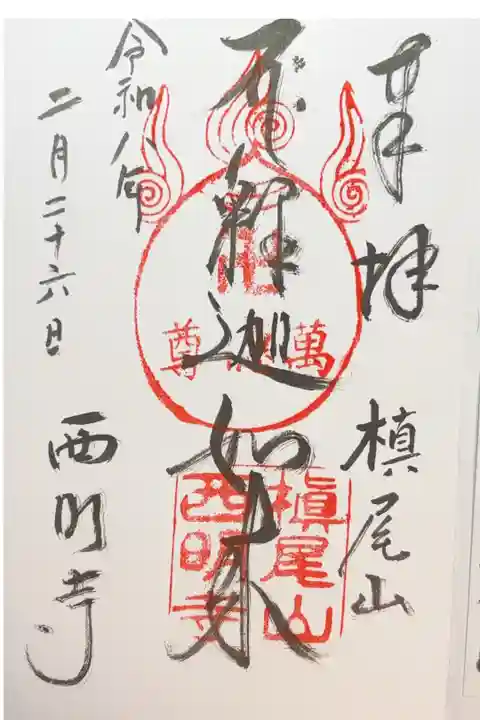 奉拝
槙尾山
釋迦如来
令和八年
二月二十六日
西明寺
萬
尊
槇尾山
西明寺